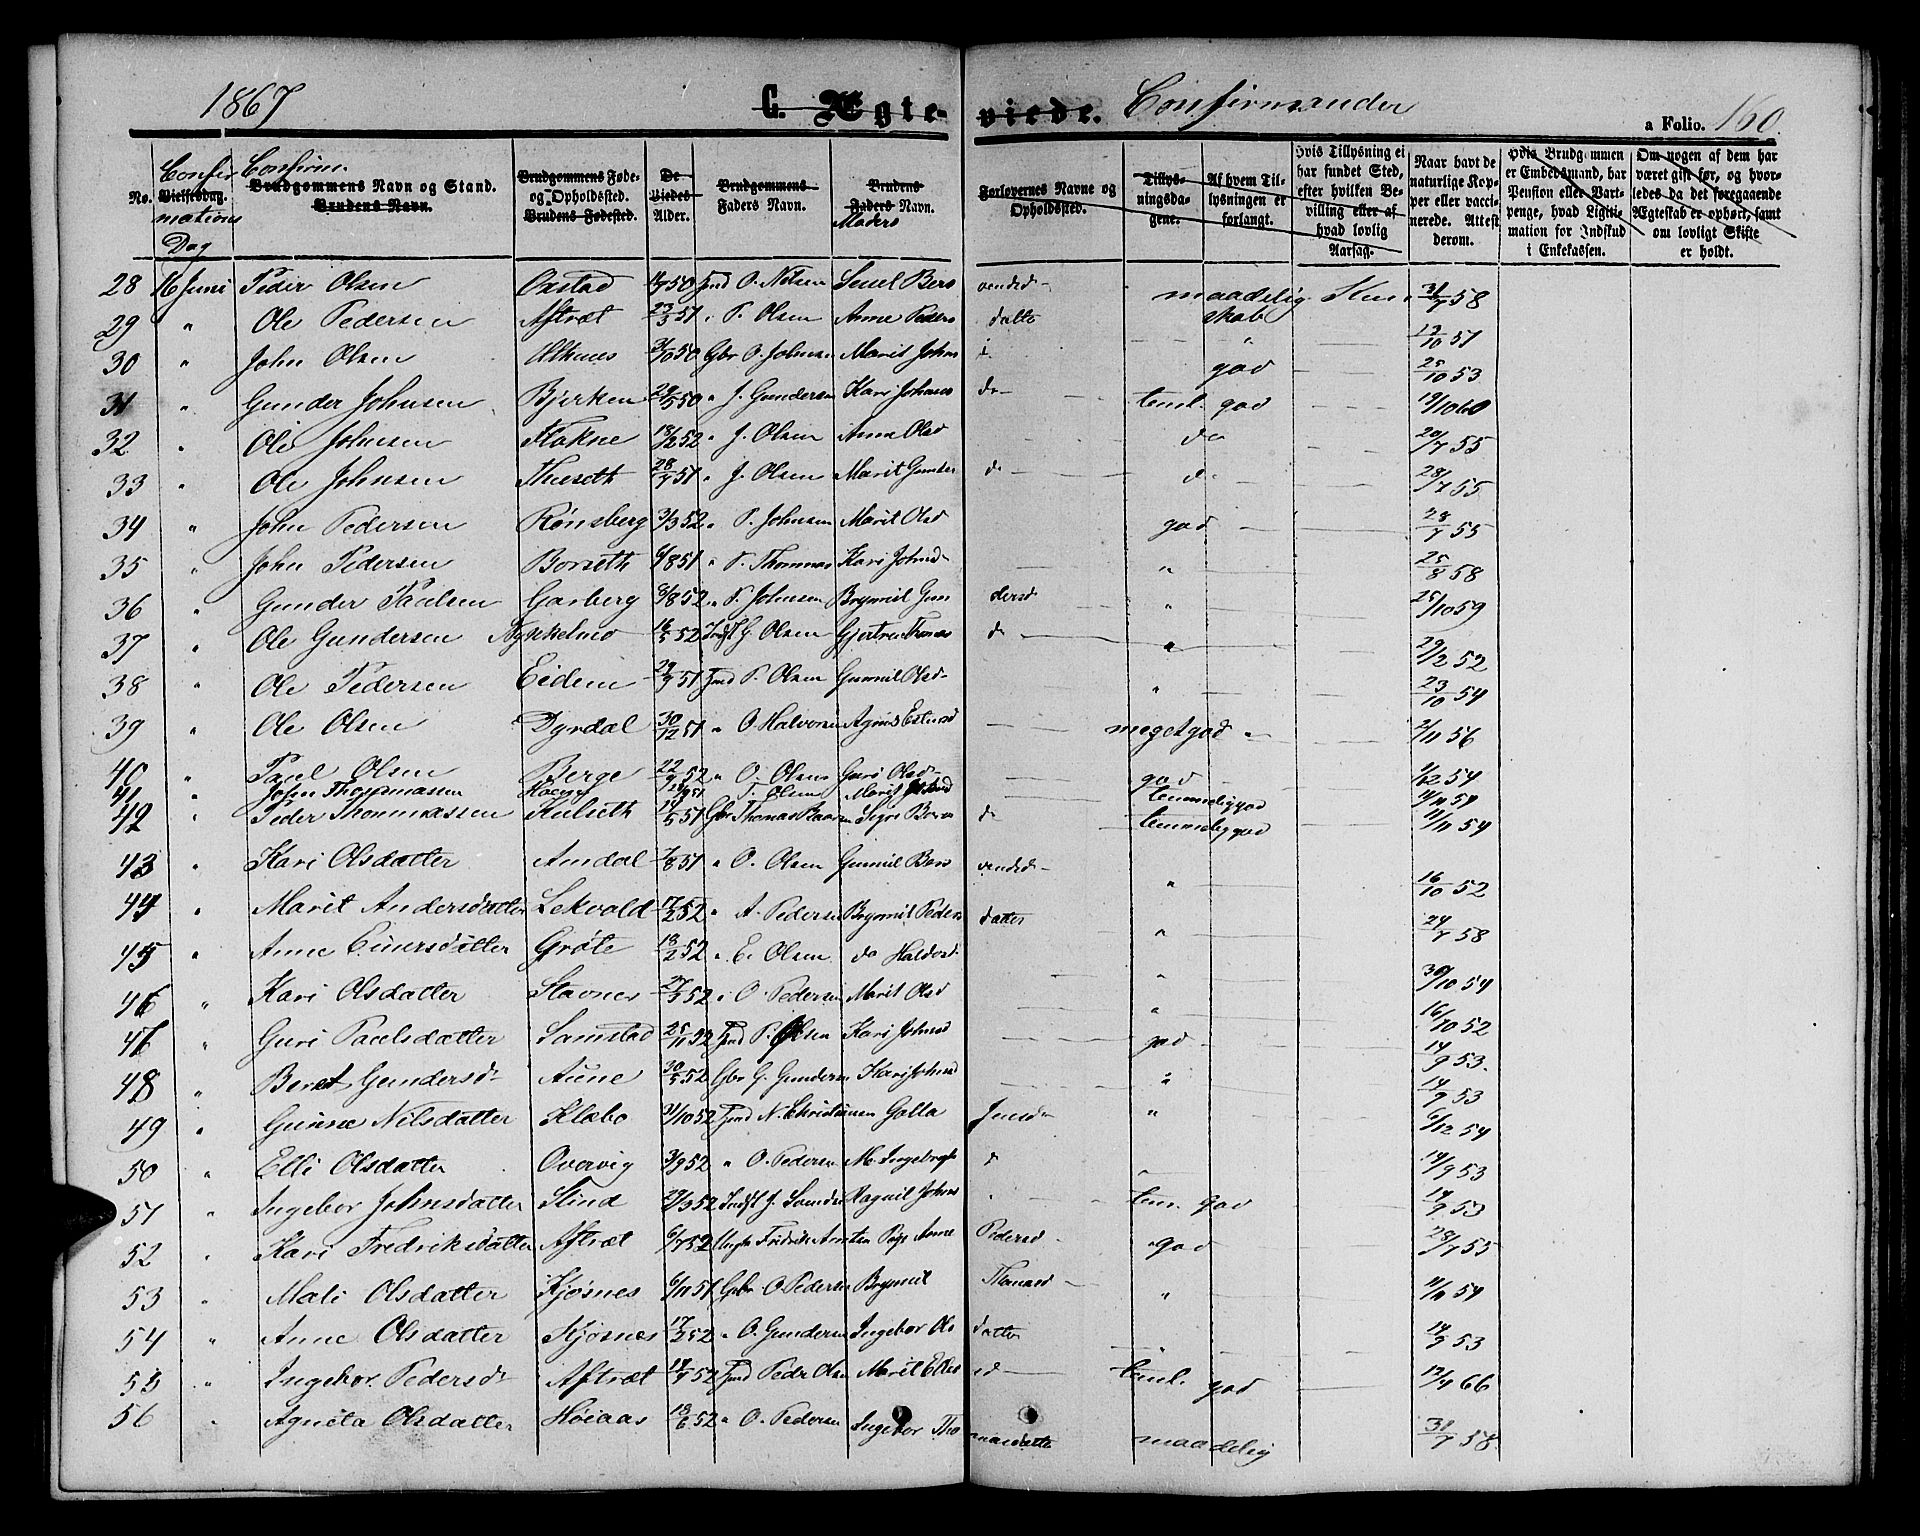 1867 C. Ægte- viede. Confirmander a Folio. 160.
No. Vielsesdag. Confirmations Dag
Confirm. Brudgommens Navn og Stand. Brudens Navn.
Brudgommens Føde- og Opholdsted. Brudens Fødested.
De Viedes Alder.
Brudgommens Faders Navn.
Brudens Faders Navn. Moders
Forlovernes Navne og Opholdsted.
Tillysningsdagene.
Af hvem Tillysningen er forlangt.
Hvis Tillysning ei har fundet Sted, efter hvilken Bevilling eller af hvad lovlig Aarsag.
Naar havt de naturlige Kopper eller vaccinerede. Attest derom.
Hvis Brudgommen er Embedsmand, har Pension eller Vartpenge, hvad Ligitimation for Indskud i Enkekassen.
Om nogen af dem har været gift før, og hvorledes da det foregaaende Ægteskab er ophørt, samt om lovligt Skifte er holdt.
28 16 Juni Peder Olsen Oxstad 50 Gmd O. Nilsen Sirel Bersvendsd- maadelig Kundskab 31/7 58
29 " Ole Pedersen Aftræt 23/3 51 " P. Olsen Anne Pedersdatter " 12/10 57
30 " John Olsen 3/10 50 Gbr O. Johnsen Marit Johnsd. god 25/10 53
31 " Gunder Johnsen Bjerken 29/5 50 " J. Gundersen Kari Johnsd- teml. god 19/10 60
32 " Ole Johnsen Flakne 18/2 52 " J. Olsen Anne Olsd do 20/7 55
33 " Ole Johnsen Thuseth 28/7 51 " J. Olsen Marit Gundersd do 28/7 55
34 " John Pedersen Rønsberg 3/3 52 " P. Johnsen Marit Olsd god 28/7 55
35 " John Pedersen Borseth 6/8 51 " P. Thommas Kari Johnsd- " 25/8 58
36 " Gunder Paulsen Garberg 8/8 52 " P. Johnsen Brynnil Gundersd " 25/10 59
37 " Ole Gundersen Nykkelmo 16/5 52 Indst G. Olsen Gjertru Thomasd " 29/12 52
38 " Ole Pedersen Eidem 29/9 51 Gmd P. Olsen Gunnil Olsd- " 23/10 54
39 " Ole Olsen Dyrdal 30/12 51 " O. Halvorsen Agnis Estensd meget god " 2/11 56
40 " Paul Olsen Berge 22/9 52 " O. Olsen Guri Olsd- god 1/12 54
41 John Thommassen T. Olsen Marit temmelig god 11/11 54
42 " Peder Thommassen Kulseth 14/5 51 Gbr Thomas Marit temmelig god 11/11 54
43 " Kari Olsdatter Amdal 7/8 51 " O. Olsen Gunnil Bersvendsd- " 16/10 52
44 " Marit Andersdatter Lekvold 17/2 52 " A. Pedersen Brynnil Pedersdatter " 24/7 58
45 " Anne Einersdatter Grøte 18/2 52 " E. Olsen do Haldorsd. " 30/10 54
46 " Kari Olsdatter Stavnes 27/3 52 " O Pedersen Marit Olsd " 16/10 52
47 " Guri Paulsdatter Samstad 25/11 52 Gmd P. Olsen Kari Johnsd god 14/9 53.
48 " Beret Gundersd- Aune 20/5 52 Gbr G. Gundersen Kari Johnsd " 14/9 53
49 " Gurine Nilsdatter Klæbo 31/10 52 Gmd N. Christiansen Golla Jensd- " 6/12 54
50 " Elli Olsdatter Overvig 3/9 52 " O. Pedersen M. Ingebrigtsd " 14/9 53
51 " Ingebor Johnsdatter Stind 27/3 52 Indst J. Ragnil Johns " tem. god 14/9 53
52 " Kari Fredriksdatter Aftræt 6/7 52 Ungk Fridrik Arntsen Pige Anne Pedersd- god 28/7 55
53 " Mali Olsdatter Kjøsnes 6/11 51 Gbr O. Pedersen Brynnil Thomasd- " 11/11 54
54 " Anne Olsdatter Kjøsnes 17/2 52 " O. Gundersen Ingebor Olsdatter " 14/9 53
55 " Ingebor Pedersd- Aftræt 14/7 52 Gmd Peder Olsen Marit Ellesd teml. god 12/4 66
56 " Agneta Olsdatter Høiaas 18/6 52 " O. Pedersen Ingebor Thomasdatte maadelig 31/7 58